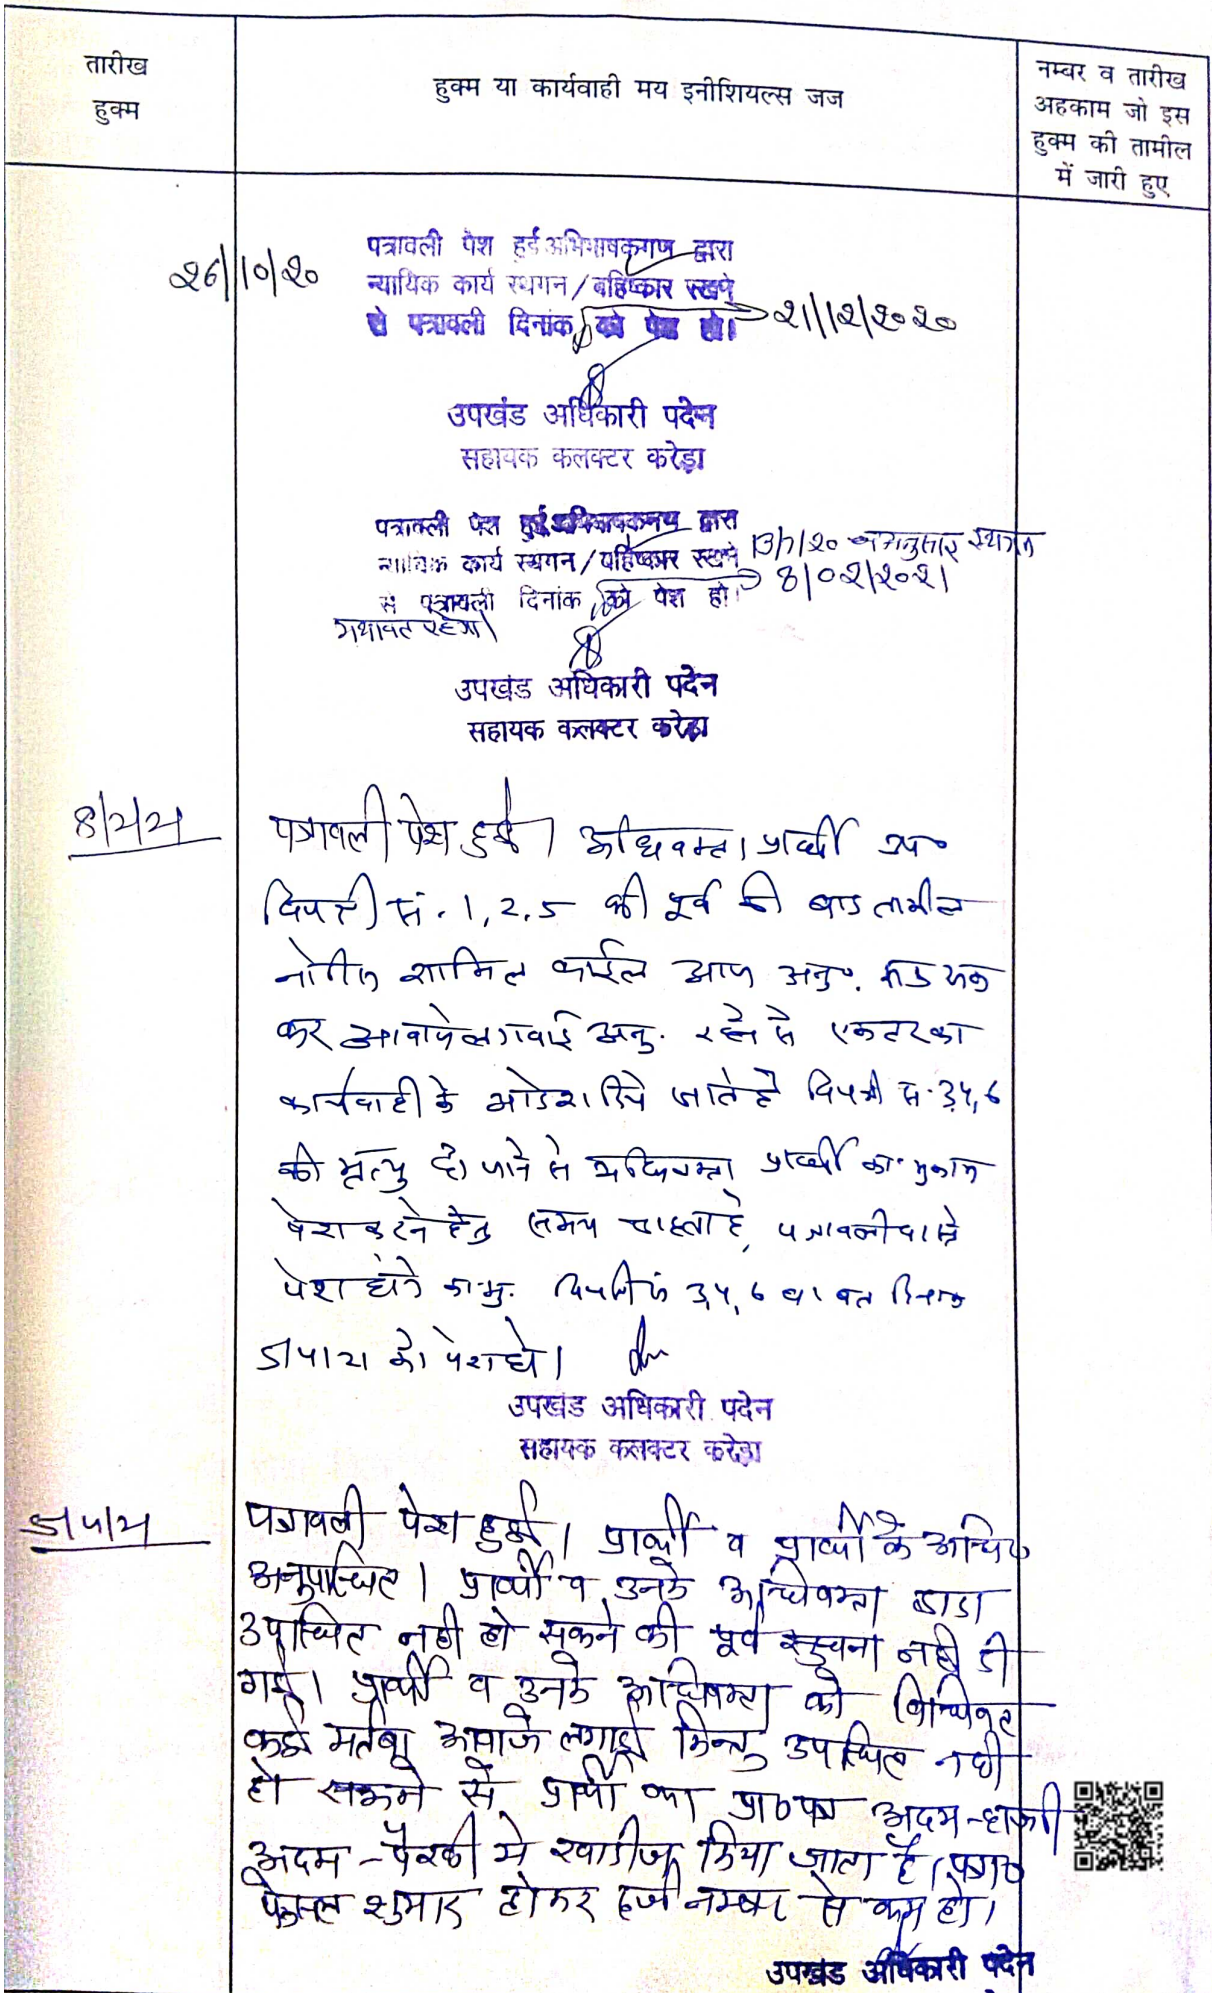 तारीख
हुक्म
हुक्म या कार्यवाही मय इनीशियल्स जज
नम्बर व तारीख
अहकाम जो इस
हुक्म की तामील
में जारी हुए
26/10/20
पत्रावली पेश हुई अभिभाषकगण द्वारा
न्यायिक कार्य स्थगन/बहिष्कार रखने
से पत्रावली दिनांक को पेश हो। 21/12/2020
उपखंड अधिकारी पदेन
सहायक कलक्टर करेड़ा
पत्रावली पेश हुई अभिभाषकगण द्वारा
न्यायिक कार्य स्थगन/बहिष्कार रखने 13/7/20 स्थगन
से पत्रावली दिनांक को पेश हो। 8/02/2021
यथावत रहेगा।
उपखंड अधिकारी पदेन
सहायक कलक्टर करेड़ा
8/2/21
पत्रावली पेश हुई। अधिवक्ता प्रार्थी उप०
विपक्षी सं. 1, 2, 5 की पूर्व की बाद तामील
नोटिस शामिल फाईल आज अनु०.
कर आवाजे लगवाई अनु. रहने से एकतरफा
कार्यवाही के आदेश दिये जाते है विपक्षी सं. 3,4,6
की मृत्यु हो जाने से अधिवक्ता प्रार्थी का. मुकाम
पेश करने हेतु समय चाहता है, पत्रावली वास्ते
पेश होने का.मु. विपक्षी सं 3,4,6
को पेश हो।
उपखंड अधिकारी पदेन
सहायक कलक्टर करेड़ा
पत्रावली पेश हुई। प्रार्थी व प्रार्थी के अधि०
अनुपस्थित। प्रार्थी व उनके अधिवक्ता द्वारा
उपस्थित नही हो सकने की पूर्व सूचना नही दी
गई। प्रार्थी व उनके अधिवक्ता को विधिवत
कई मर्तबा आवाजे लगाई किन्तु उपस्थित नही
हो सकने से प्रार्थी का प्रा०पत्र अदम-हाजरी
अदम-पैरवी मे खारीज किया जाता है। पत्रा०
फैसल शुमार होकर दर्ज नम्बर से कम हो।
उपखंड अधिकारी पदेन